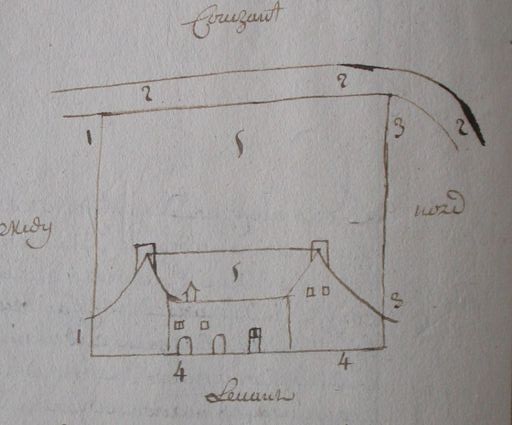 Couzant
2 2
1 3 2
midy nord
1 3
4 4
Leuant